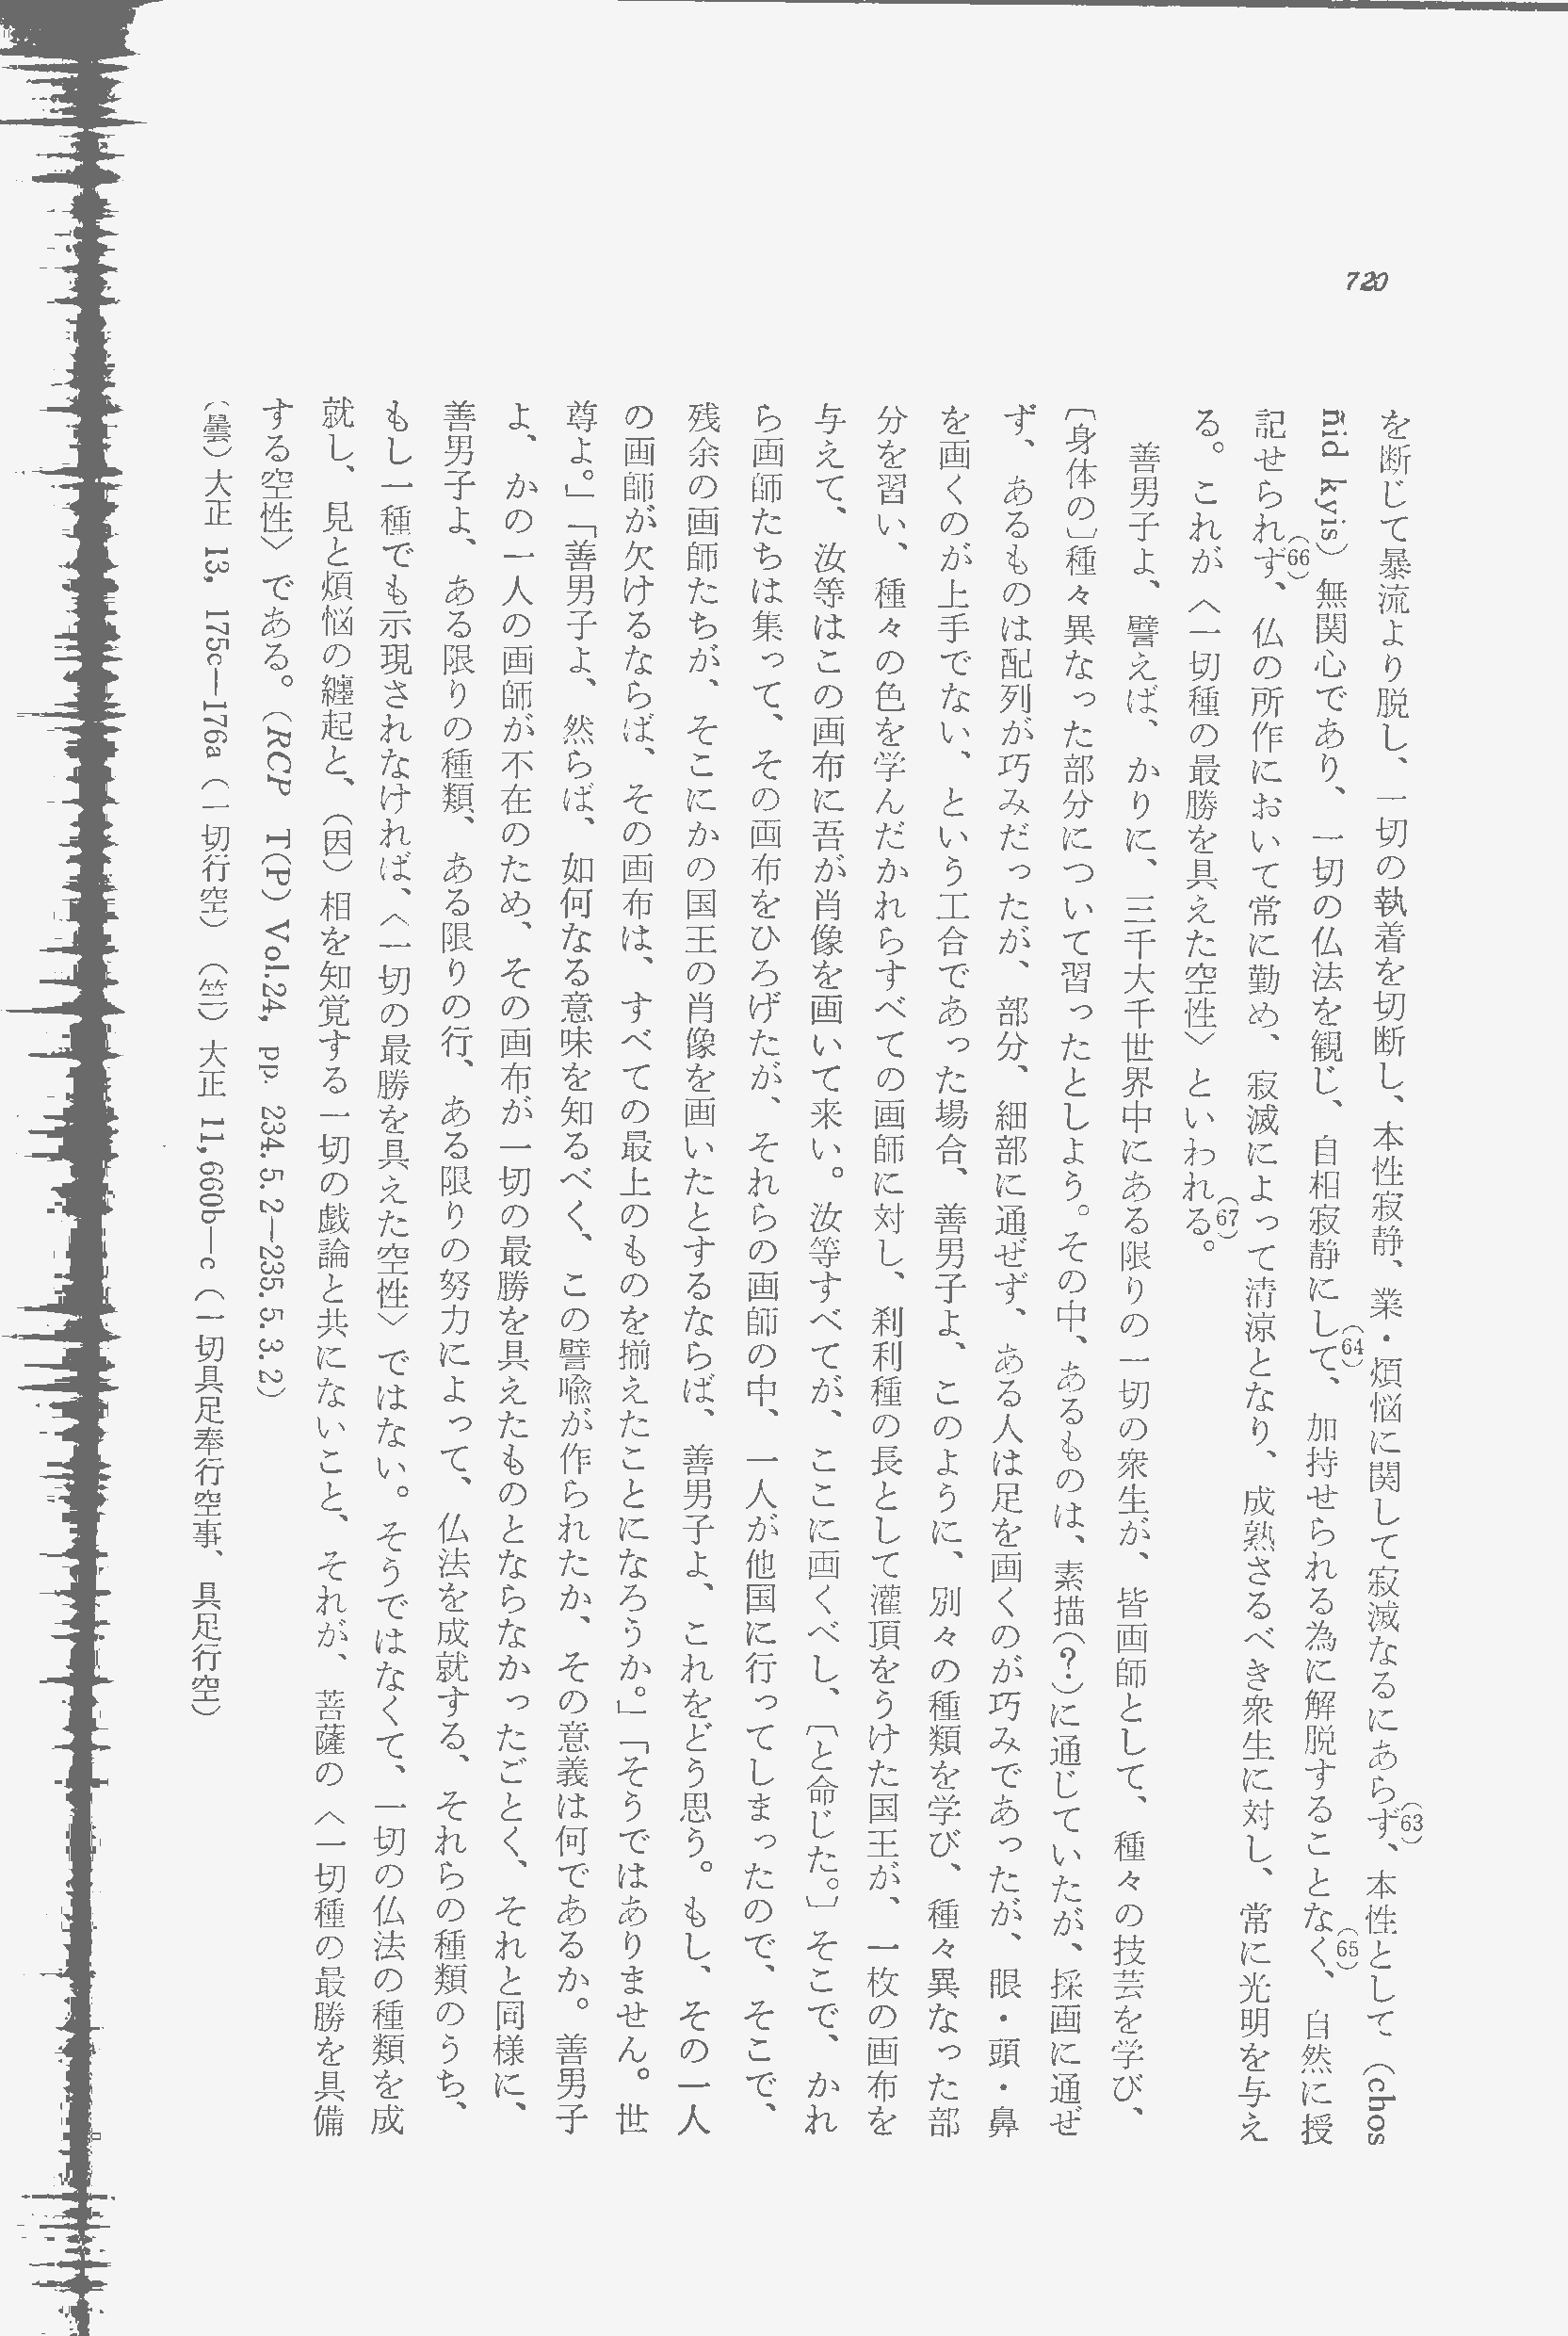 720
を断じて暴流より脱し、一切の執着を切断し、本性寂静、業・煩悩に関して寂滅なるにあらず(63)、本性として（chos
ñid kyis）無関心であり、一切の仏法を観じ、自相寂静にして(64)、加持せられる為に解脱することなく(65)、自然に授
記せられず(66)、仏の所作において常に勤め、寂滅によって清涼となり、成熟さるべき衆生に対し、常に光明を与え
る。これが〈一切種の最勝を具えた空性〉といわれる(67)。
善男子よ、譬えば、かりに、三千大千世界中にある限りの一切の衆生が、皆画師として、種々の技芸を学び、
〔身体の〕種々異なった部分について習ったとしよう。その中、あるものは、素描（？）に通じていたが、採画に通ぜ
ず、あるものは配列が巧みだったが、部分、細部に通ぜず、ある人は足を画くのが巧みであったが、眼・頭・鼻
を画くのが上手でない、という工合であった場合、善男子よ、このように、別々の種類を学び、種々異なった部
分を習い、種々の色を学んだかれらすべての画師に対し、刹利種の長として灌頂をうけた国王が、一枚の画布を
与えて、汝等はこの画布に吾が肖像を画いて来い。汝等すべてが、ここに画くべし、〔と命じた。〕そこで、かれ
ら画師たちは集って、その画布をひろげたが、それらの画師の中、一人が他国に行ってしまったので、そこで、
残余の画師たちが、そこにかの国王の肖像を画いたとするならば、善男子よ、これをどう思う。もし、その一人
の画師が欠けるならば、その画布は、すべての最上のものを揃えたことになろうか。」「そうではありません。世
尊よ。」「善男子よ、然らば、如何なる意味を知るべく、この譬喩が作られたか、その意義は何であるか。善男子
よ、かの一人の画師が不在のため、その画布が一切の最勝を具えたものとならなかったごとく、それと同様に、
善男子よ、ある限りの種類、ある限りの行、ある限りの努力によって、仏法を成就する、それらの種類のうち、
もし一種でも示現されなければ、〈一切の最勝を具えた空性〉ではない。そうではなくて、一切の仏法の種類を成
就し、見と煩悩の纏起と、（因）相を知覚する一切の戯論と共にないこと、それが、菩薩の〈一切種の最勝を具備
する空性〉である。（RCP T(P) Vol.24, pp. 234. 5. 2—235. 5. 3. 2）
（曇）大正 13, 175c—176a（一切行空）（竺）大正 11, 660b—c（一切具足奉行空事、具足行空）